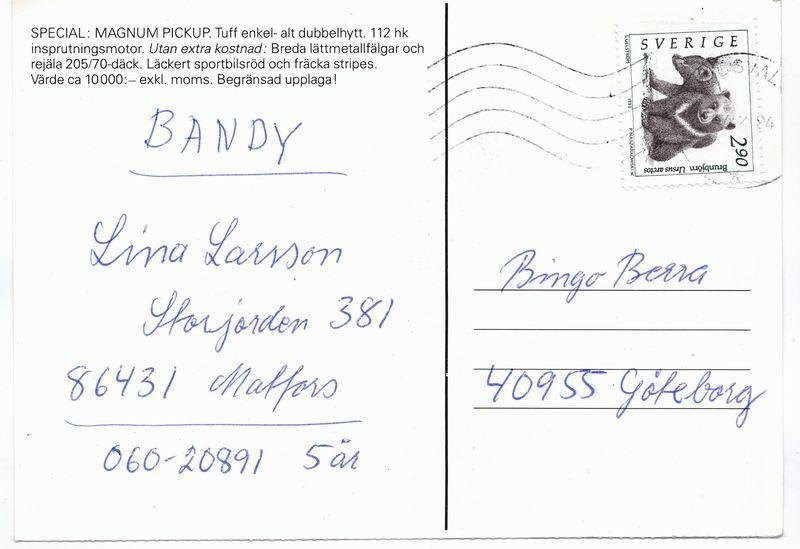 SPECIAL: MAGNUM PICKUP. Tuff enkel- alt dubbelhytt. 112 hk
insprutningsmotor. Utan extra kostnad: Breda lättmetallfälgar och
rejäla 205/70-däck. Läckert sportbilsröd och fräcka stripes.
Värde ca 10000:– exkl. moms. Begränsad upplaga!
BANDY
Lina Larsson
Storjorden 381
86431 Matfors
060-20891 5 år
SVERIGE
2.90
Brunbjörn Ursus arctos
Bingo Berra
40955 Göteborg